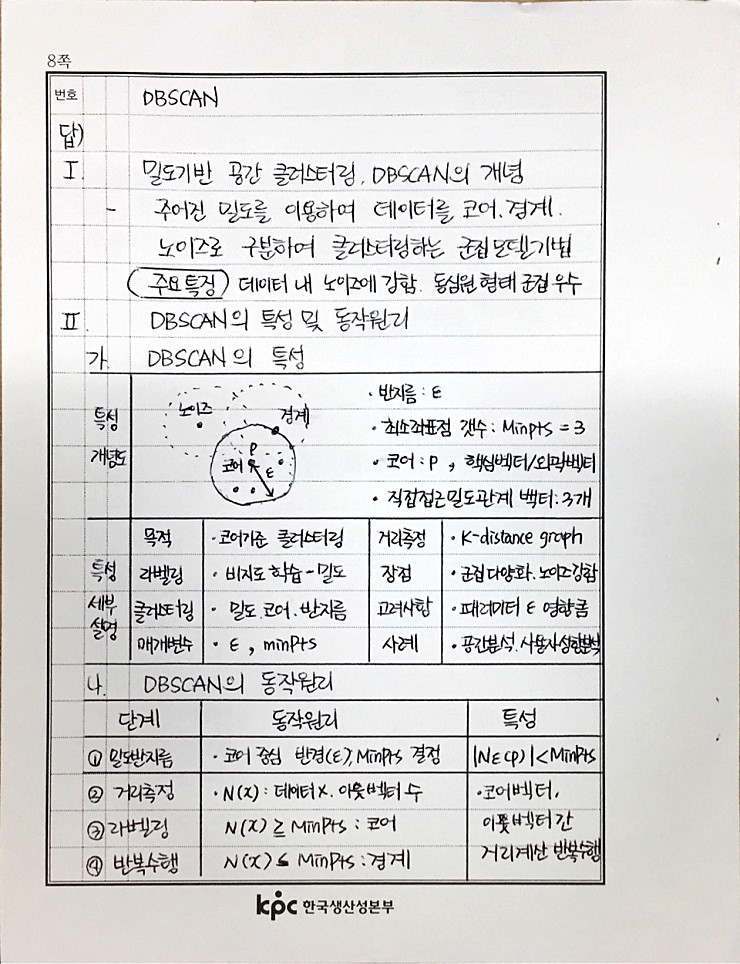 8쪽
번호 DBSCAN
답)
I. 밀도기반 공간 클러스터링, DBSCAN의 개념
- 주어진 밀도를 이용하여 데이터를 코어, 경계,
노이즈로 구분하여 클러스터링하는 군집모델기법
주요특징 데이터 내 노이즈에 강함. 동심원 형태 군집 우수
II. DBSCAN의 특성 및 동작원리
가. DBSCAN의 특성
특성
개념도
노이즈
경계
코어
P
ε
· 반지름 : ε
· 최소좌표점 갯수 : Minpts = 3
· 코어 : P , 핵심벡터/외곽벡터
· 직접접근밀도관계 벡터 : 3개
특성
세부
설명
목적 · 코어기준 클러스터링 거리측정 · K-distance graph
라벨링 · 비지도 학습 - 밀도 장점 · 군집다양화. 노이즈강함
클러스터링 · 밀도. 코어. 반지름 고려사항 · 파라미터 ε 영향큼
매개변수 · ε , minPts 사례 · 공간분석. 사용자성향분석
나. DBSCAN의 동작원리
단계 동작원리 특성
① 밀도반지름 · 코어 중심 반경(ε), MinPts 결정 |Nε(p)| < MinPts
② 거리측정 · N(x) : 데이터 x. 이웃벡터 수 · 코어벡터,
③ 라벨링 N(x) ≥ MinPts : 코어 이웃벡터간
④ 반복수행 N(x) ≤ MinPts : 경계 거리계산 반복수행
kpc 한국생산성본부